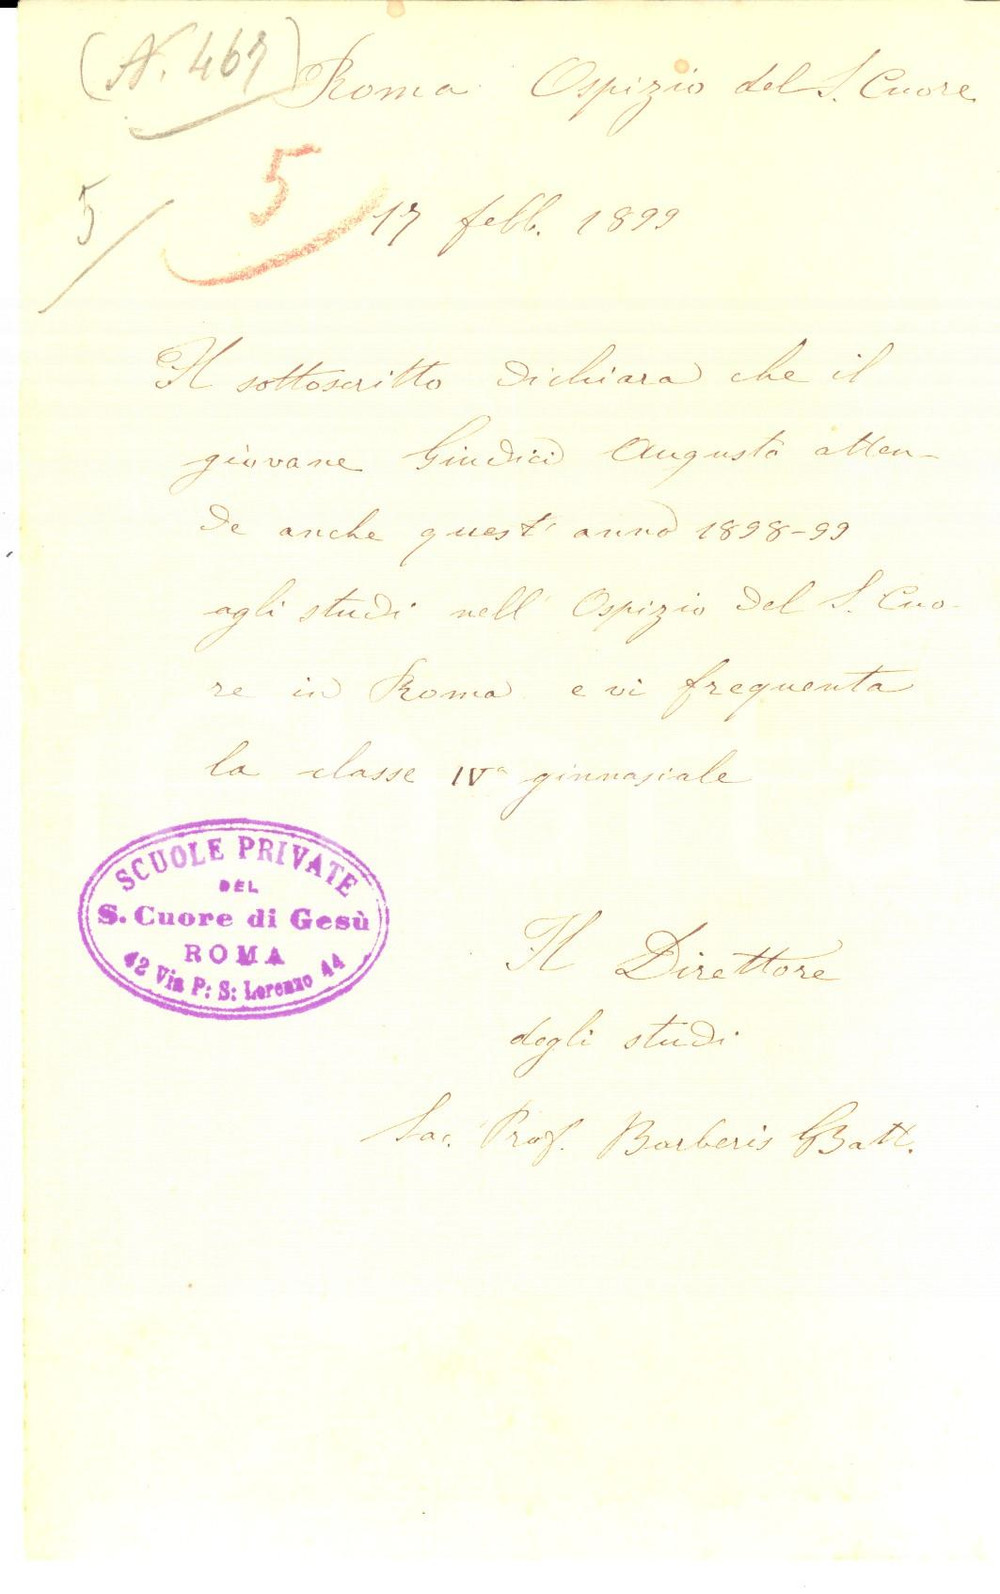 (N. 467)
Roma Ospizio del S. Cuore
5
5
17 febb. 1899
Il sottoscritto dichiara che il
giovane Giudici Augusto atten-
de anche quest' anno 1898-99
agli studi nell' Ospizio del S. Cuo-
re in Roma e vi frequenta
la classe IVa ginnasiale
SCUOLE PRIVATE
DEL
S. Cuore di Gesù
ROMA
42 Via P: S: Lorenzo 44
Il Direttore
degli studi
Sac. Prof. Barberis GBatt.